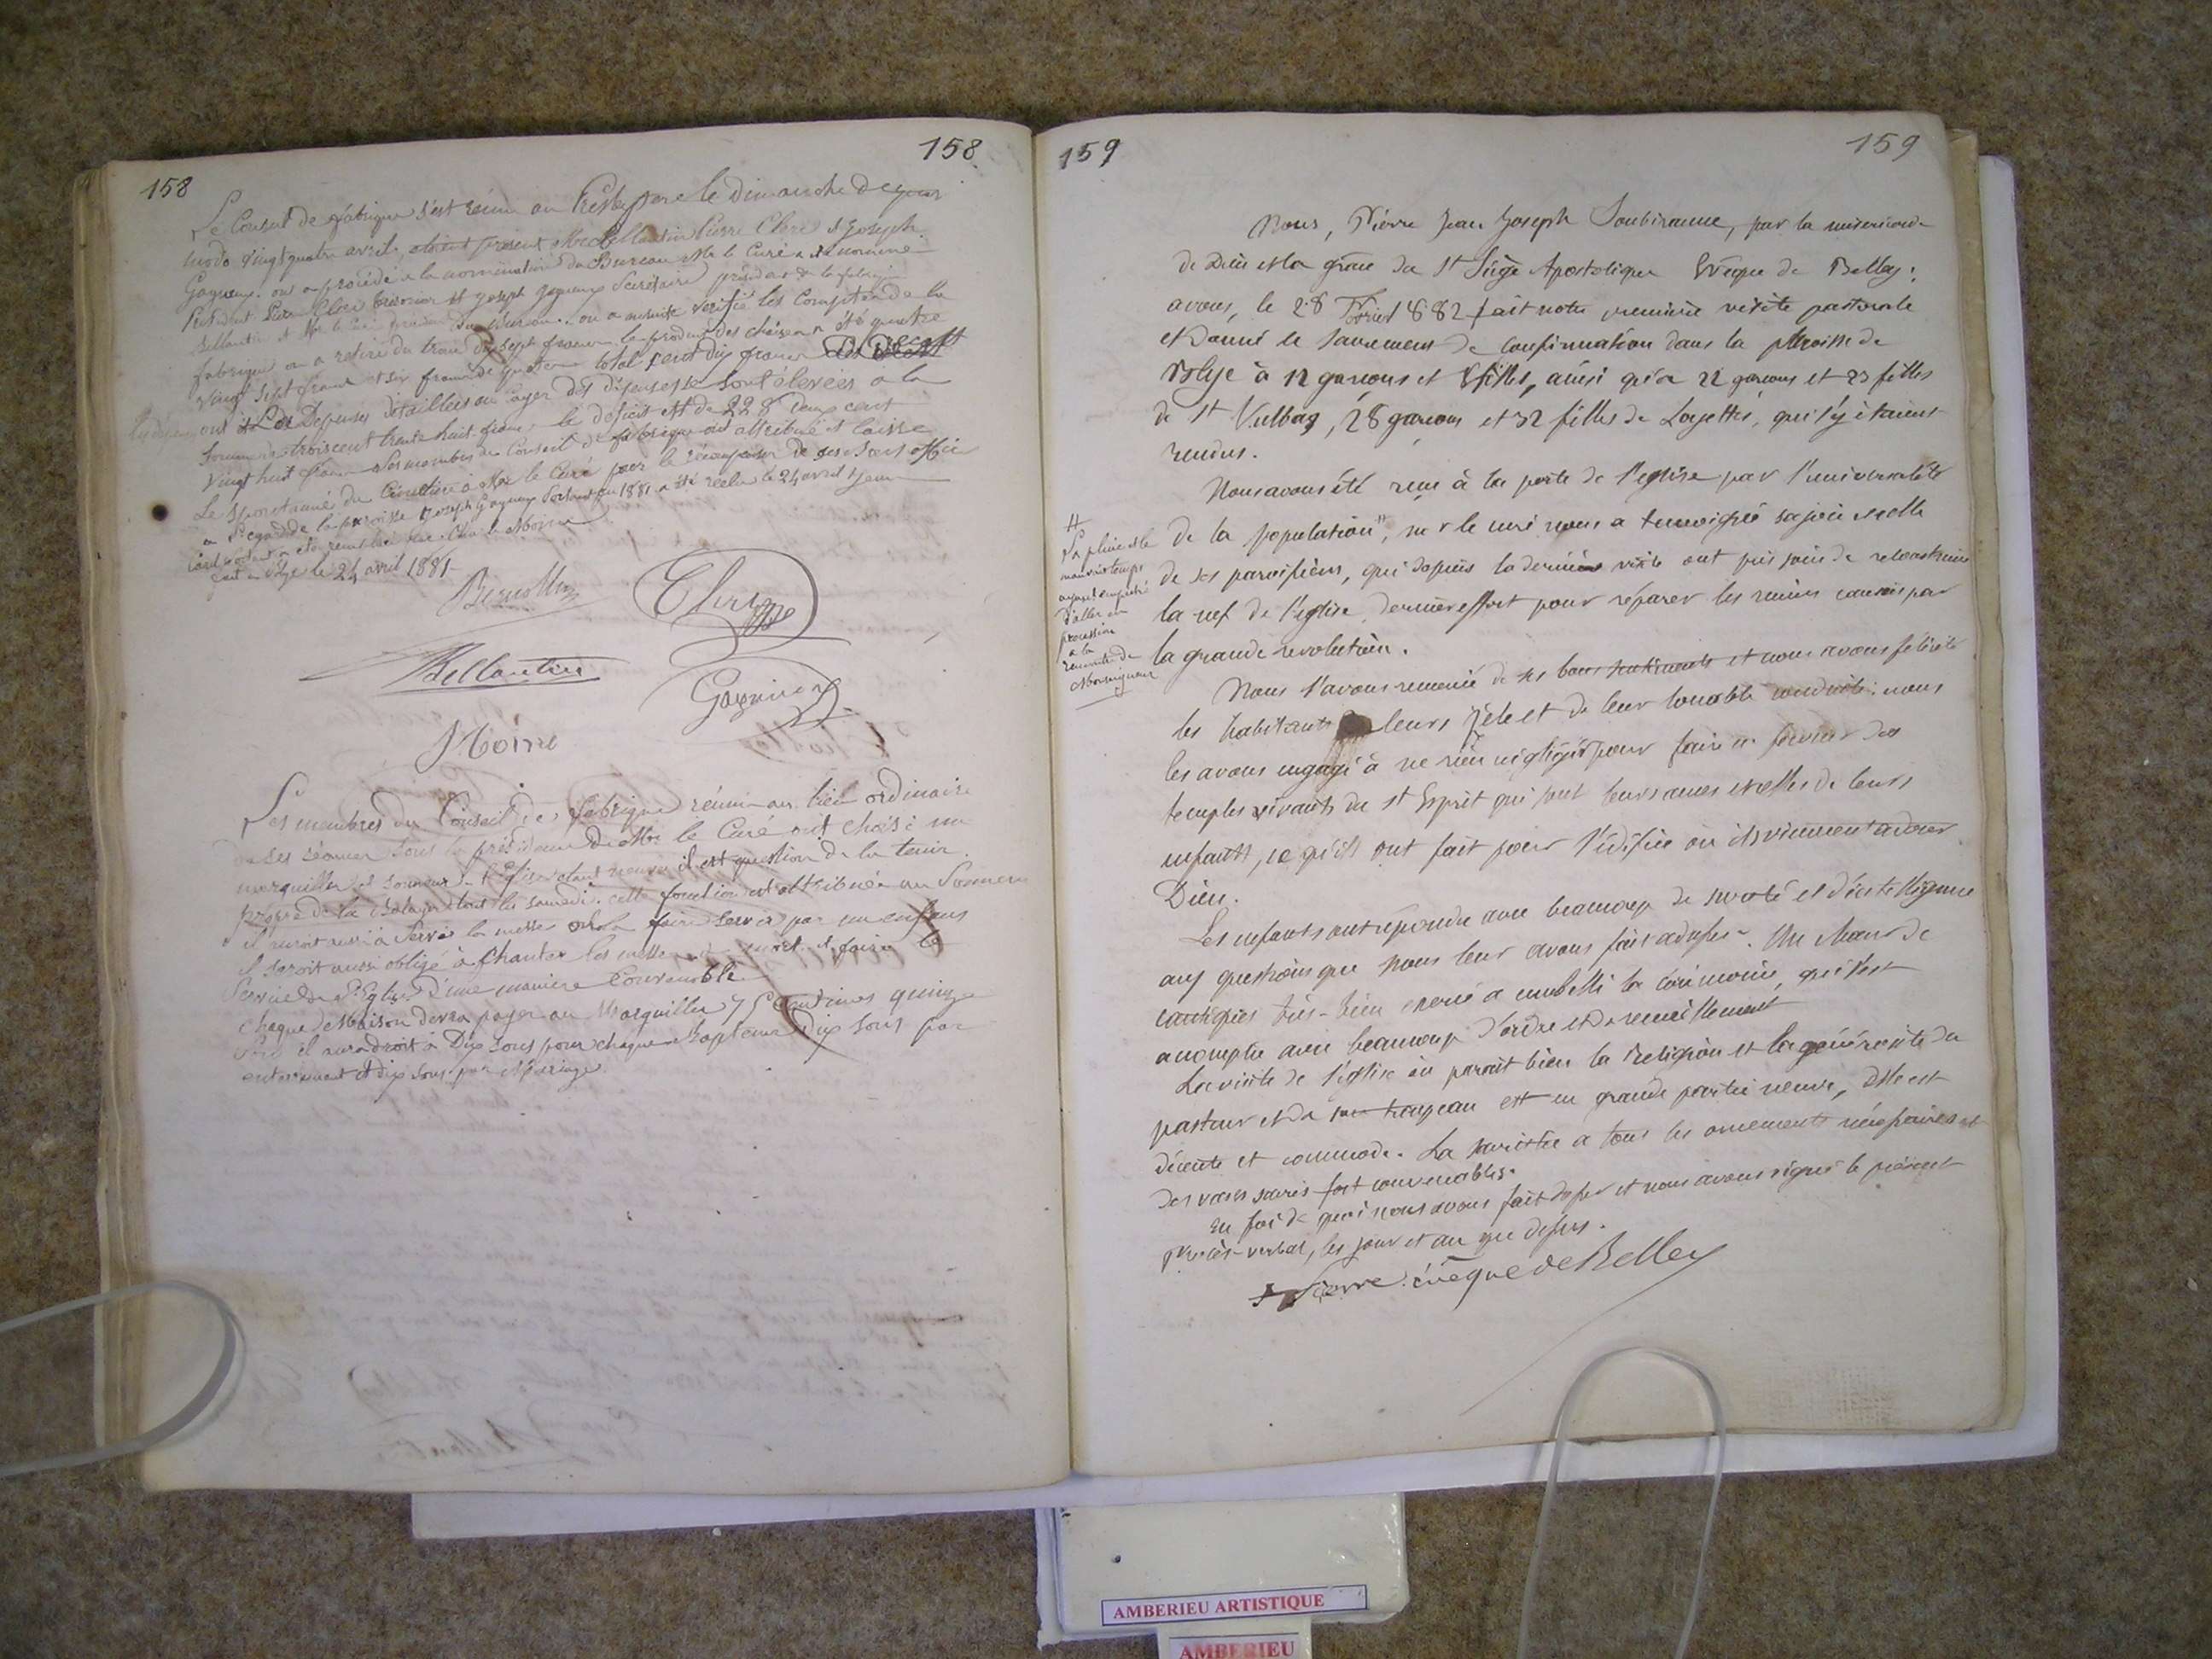 158
158
Le Conseil de fabrique s'est réuni au Presbytere le Dimanche de quasi
modo vingt quatre avril, étaient présent Mr Bellantin Pierre Clerc et Joseph
Gagneux. on a procédé a la nomination du Bureau Mr le Curé a été nommé
Président Pierre Clerc trésorier et joseph gagneux Secrétaire président de la fabrique
Bellantin et Mr le Curé président du bureau. on a ensuite verifié les Comptes de la
fabrique on a retiré du tronc dix sept francs le produit des chaises a été quatre
vingt sept francs et six francs de total cent dix francs
ont été Les Depenses détaillées au cayer des dépenses se sont élevées a la
somme de trois cent trente huit francs, le déficit est de 228 deux cent
vingt huit francs Les membres du Conseil de fabrique ont attribué et laissé
Le spontanné du Cimetière à Mr le Curé pour le récompenser de ses
a l'egard de la paroisse Joseph Gagneux Sortant en 1881 a été réélu le 24 avril
fait a Blye le 24 avril 1881
Clerc
Bellantin
Gagneux
Moine
Les membres du Conseil de fabrique réunis au lieu ordinaire
de ses séances sous la présidence de Mr le Curé ont choisi un
marguillier et sonneur. l'Eglise étant neuve il est question de la tenir
propre de la Balayer tout les samedi. cette fonction est attribuée au Sonneur
il auroit aussi à Servir la messe ou la faire servir par un enfant
il seroit aussi obligé à chanter les messes de mort et faire le
service de l'Eglise D'une manière Convenable
chaque Maison devra payer au Marguillier 75 Centimes quinze
sous il aura droit à Dix sous pour chaque Baptême Dix sous par
enterrement et dix sous par Mariage
159
159
Nous, Pierre Jean Joseph Soubiranne, par la miséricorde
de Dieu et la grâce du St Siège Apostolique Evêque de Belley:
avons, le 28 Février 1882 fait notre première visite pastorale
et donné le Sacrement de Confirmation dans la paroisse de
Blye à 12 garçons et 8 filles, ainsi qu'à 22 garçons et 23 filles
de St Vulbas, 28 garçons et 32 filles de Loyettes, qui s'y étaient
rendus.
Nous avons été reçu à la porte de l'église par l'universalité
de la population", mr le curé nous a temoigné sa joie et celle
de ses paroissiens, qui depuis la dernière visite ont pris soin de reconstruire
la nef de l'église, dernier effort pour réparer les ruines causées par
la grande revolution.
"
La pluie et le
mauvais temps
ayant empêché
d'aller en
procession
a la
rencontre de
Monseigneur
Nous l'avons remercié de ses bons sentiments et nous avons félicité
les habitants leurs zèle et de leur louable conduite: nous
les avons engagé à ne rien négliger pour faire en faveur des
temples vivants du St Esprit qui sont leurs ames et celles de leurs
enfants, ce qu'ils ont fait pour l'édifice où ils viennent adorer
Dieu.
Les enfants ont repondu avec beaucoup de sureté et d'intelligence
aux questions que nous leur avons fait adresser. Un chant de
cantiques très-bien executé a embelli la cérémonie, qui s'est
accomplie avec beaucoup d'ordre et de recueillement
La visite de l'église où parait bien la Religion et la générosité du
pasteur et du troupeau est en grande partie neuve, elle est
décente et commode. La sacristie a tous les ornements nécessaires et
des vases sacrés fort convenables.
En foi de quoi nous avons fait dresser et nous avons signé le présent
procès-verbal, les jour et an que dessus.
+ Pierre évêque de Belley
AMBERIEU ARTISTIQUE
AMBERIEU